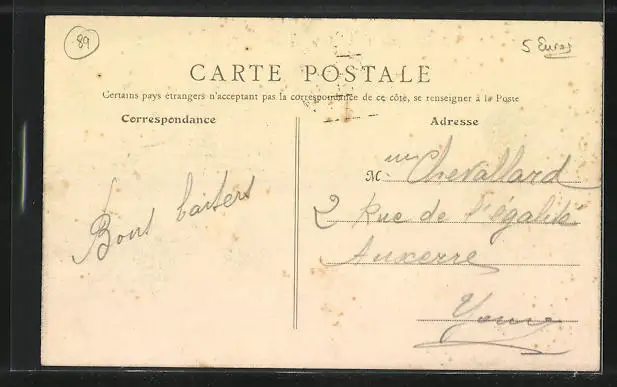 89
5 Euros
CARTE POSTALE
Certains pays étrangers n'acceptant pas la correspondance de ce côté, se renseigner à la Poste
Correspondance
Adresse
Mme Chevallard
2 Rue de l'égalité
Auxerre
Yonne
Bons baisers